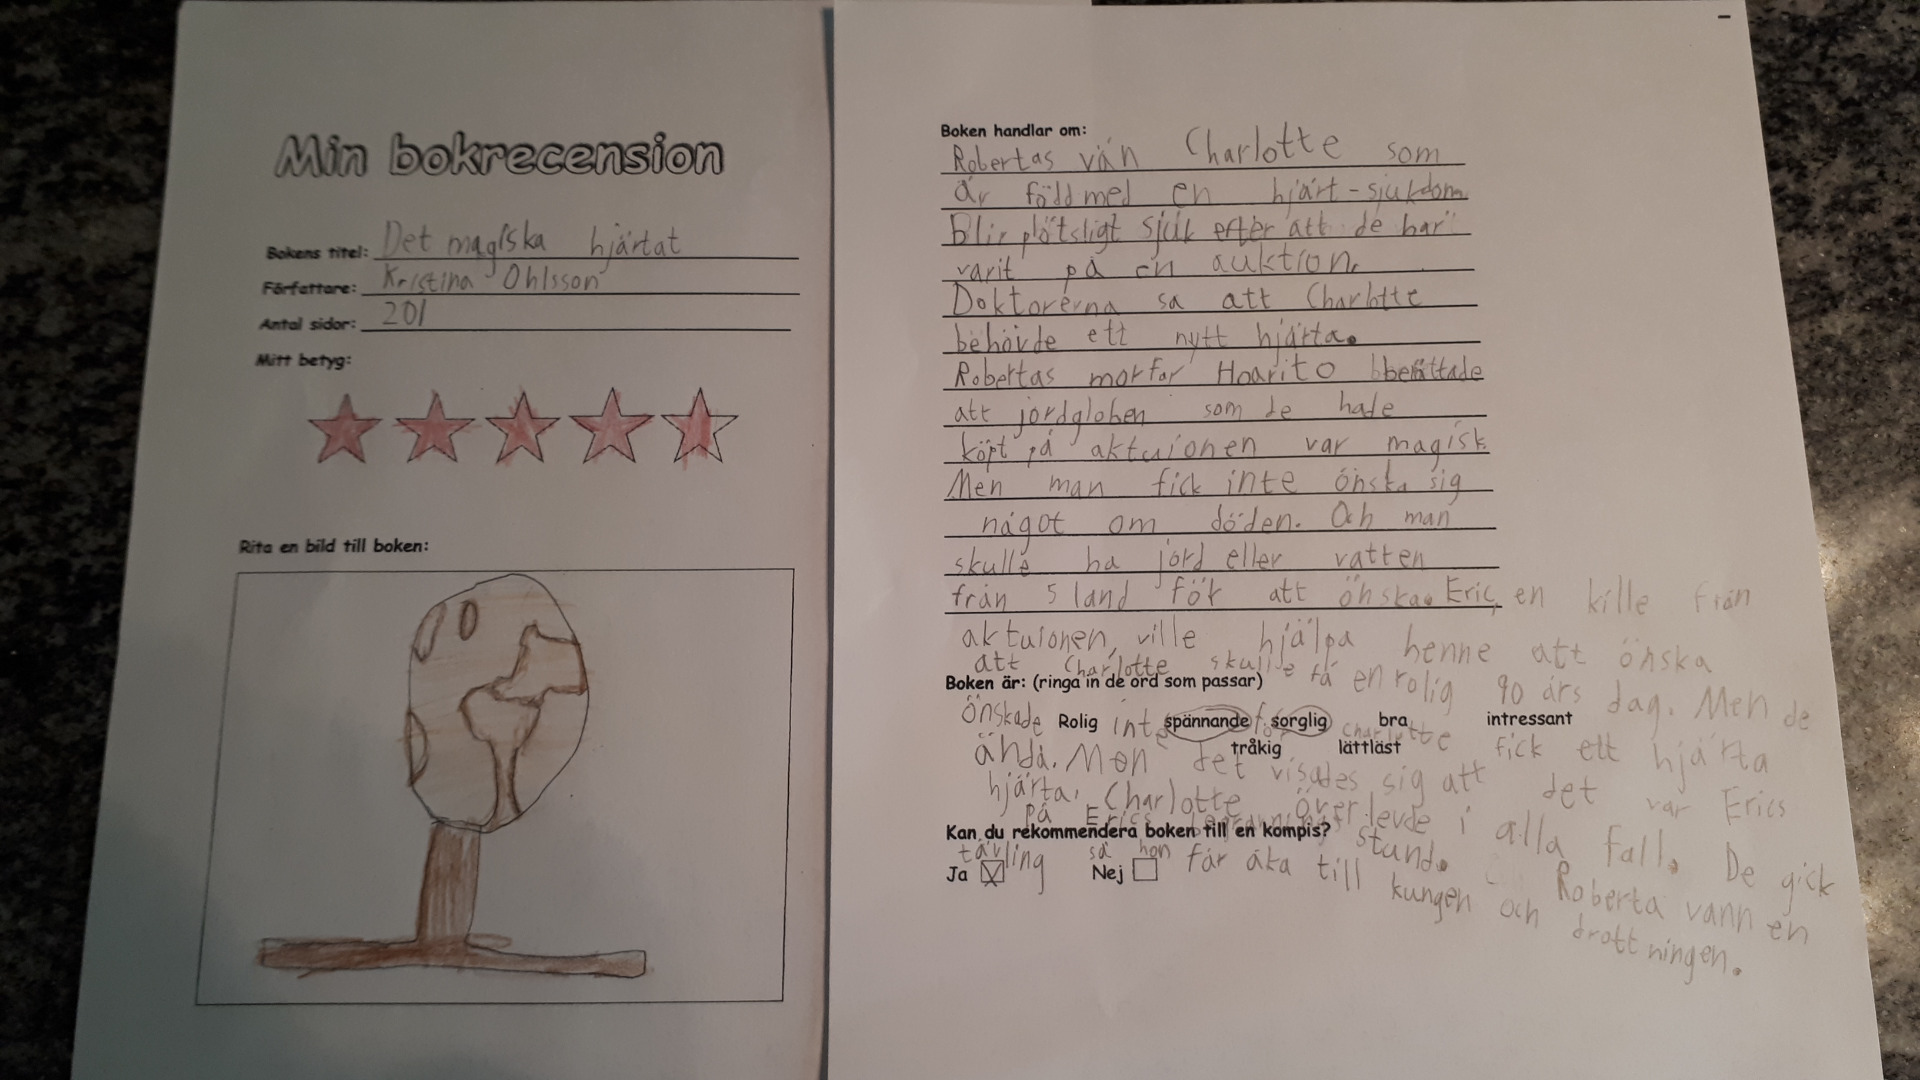 Min bokrecension
Bokens titel: Det magiska hjärtat
Författare: Kristina Ohlsson
Antal sidor: 201
Mitt betyg:
Rita en bild till boken:
Boken handlar om:
Robertas vän Charlotte som
är född med en hjärt-sjukdom
Blir plötsligt sjuk efter att de har
varit på en auktion.
Doktorerna sa att Charlotte
behövde ett nytt hjärta.
Robertas morfar Hoarito berättade
att jordgloben som de hade
köpt på aktuionen var magisk.
Men man fick inte önska sig
något om döden. Och man
skulle ha jord eller vatten
från 5 land för att önska. Eric, en kille från
aktuionen, ville hjälpa henne att önska
att Charlotte skulle få en rolig 90 års dag. Men de
Boken är: (ringa in de ord som passar)
önskade inte för Charlotte fick ett hjärta
Rolig spännande sorglig bra intressant
tråkig lättläst
ändå. Men det visades sig att det var Erics
hjärta. Charlotte överlevde i alla fall. De gick
på Erics begravnings stund. Roberta vann en
Kan du rekommendera boken till en kompis?
tävling så hon får åka till kungen och drottningen.
Ja Nej